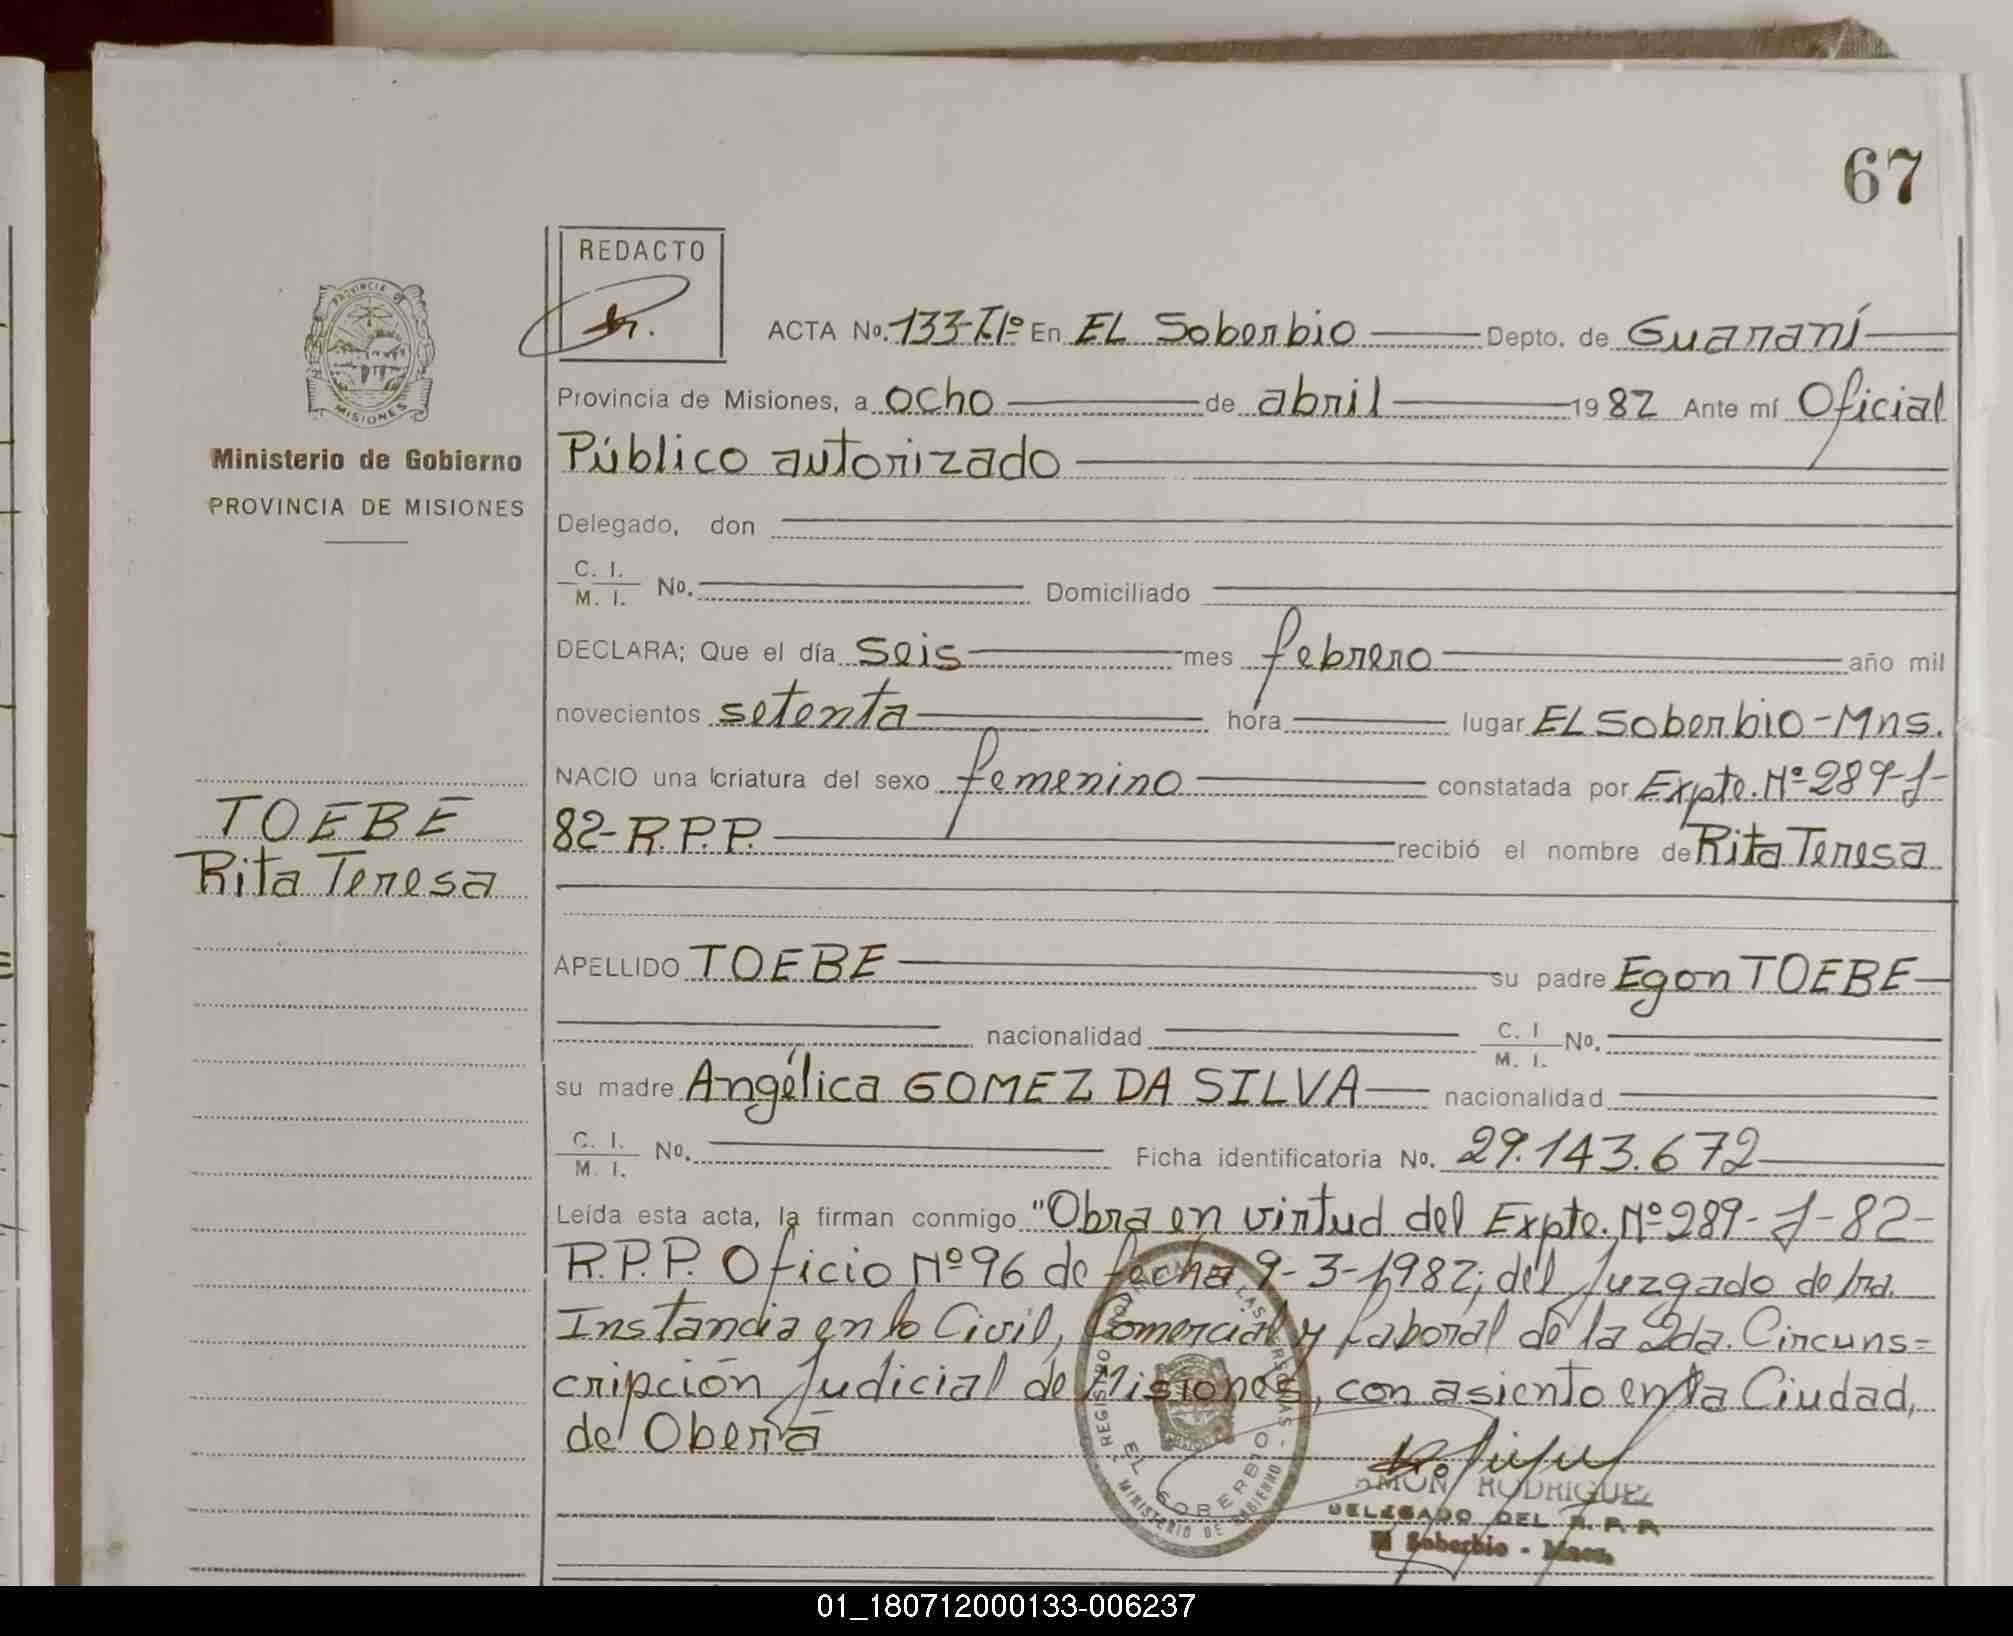 67
REDACTO
PROVINCIA DE
MISIONES
Ministerio de Gobierno
PROVINCIA DE MISIONES
TOEBE
Rita Teresa
ACTA No. 133-Tº1º En EL Soberbio Depto. de Guaraní
Provincia de Misiones, a ocho de abril 1982 Ante mí Oficial
Público autorizado
Delegado, don
C. I.
M. I. No. Domiciliado
DECLARA; Que el día seis mes febrero año mil
novecientos setenta hora lugar EL Soberbio-Mns.
NACIO una criatura del sexo femenino constatada por Expte. Nº 289-J-
82-R.P.P. recibió el nombre de Rita Teresa
APELLIDO TOEBE su padre Egon TOEBE
nacionalidad C. I
M. I. No.
su madre Angélica GOMEZ DA SILVA nacionalidad
C. I.
M. I. No. Ficha identificatoria No. 29.143.672
Leída esta acta, la firman conmigo "Obra en virtud del Expte. Nº 289-J-82-
R.P.P. Oficio Nº 96 de fecha 9-3-1982; del Juzgado de 1ra.
Instancia en lo Civil, Comercial y Laboral de la 2da. Circuns=
cripción Judicial de Misiones, con asiento en la Ciudad,
de Oberá
REGISTRO DE LAS PERSONAS
EL SOBERBIO
MINISTERIO DE GOBIERNO
RODRIGUEZ
DELEGADO DEL R. P. P.
El Soberbio - Mnes.
01_180712000133-006237